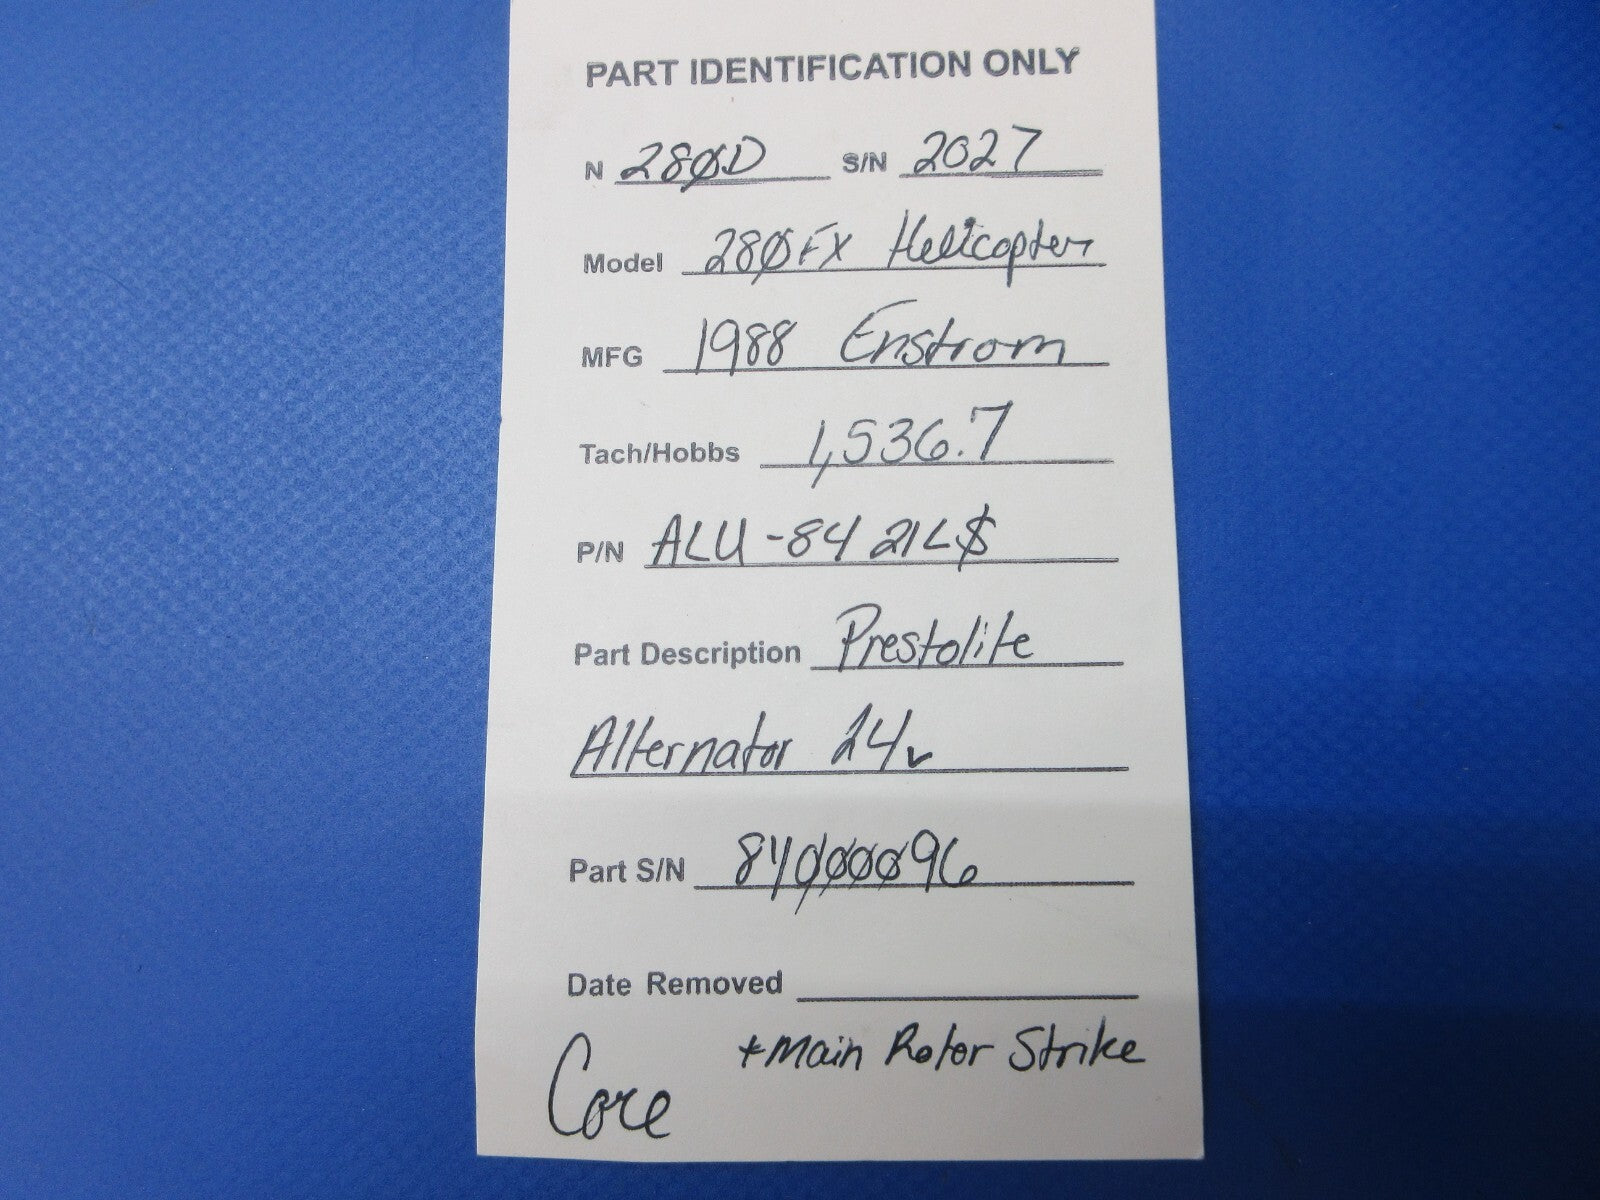 PART IDENTIFICATION ONLY
N 280D S/N 2027
Model 280FX Helicopter
MFG 1988 Enstrom
Tach/Hobbs 1,536.7
P/N ALU-8421L$
Part Description Prestolite
Alternator 24v
Part S/N 840000096
Date Removed
*Main Rotor Strike
Core